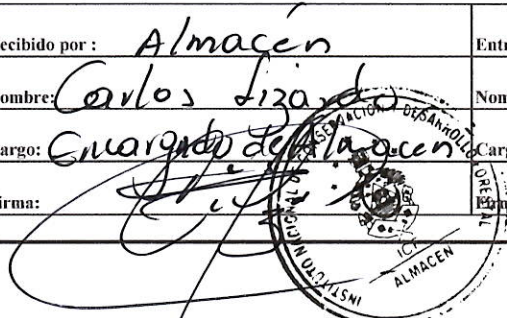 ecibido por : Almacén Entr
ombre: Carlos Lizardo Nom
argo: Encargado de Almacen Carg
irma:
INSTITUTO NACIONAL DE CONSERVACION Y DESARROLLO FORESTAL
ICF
ALMACEN